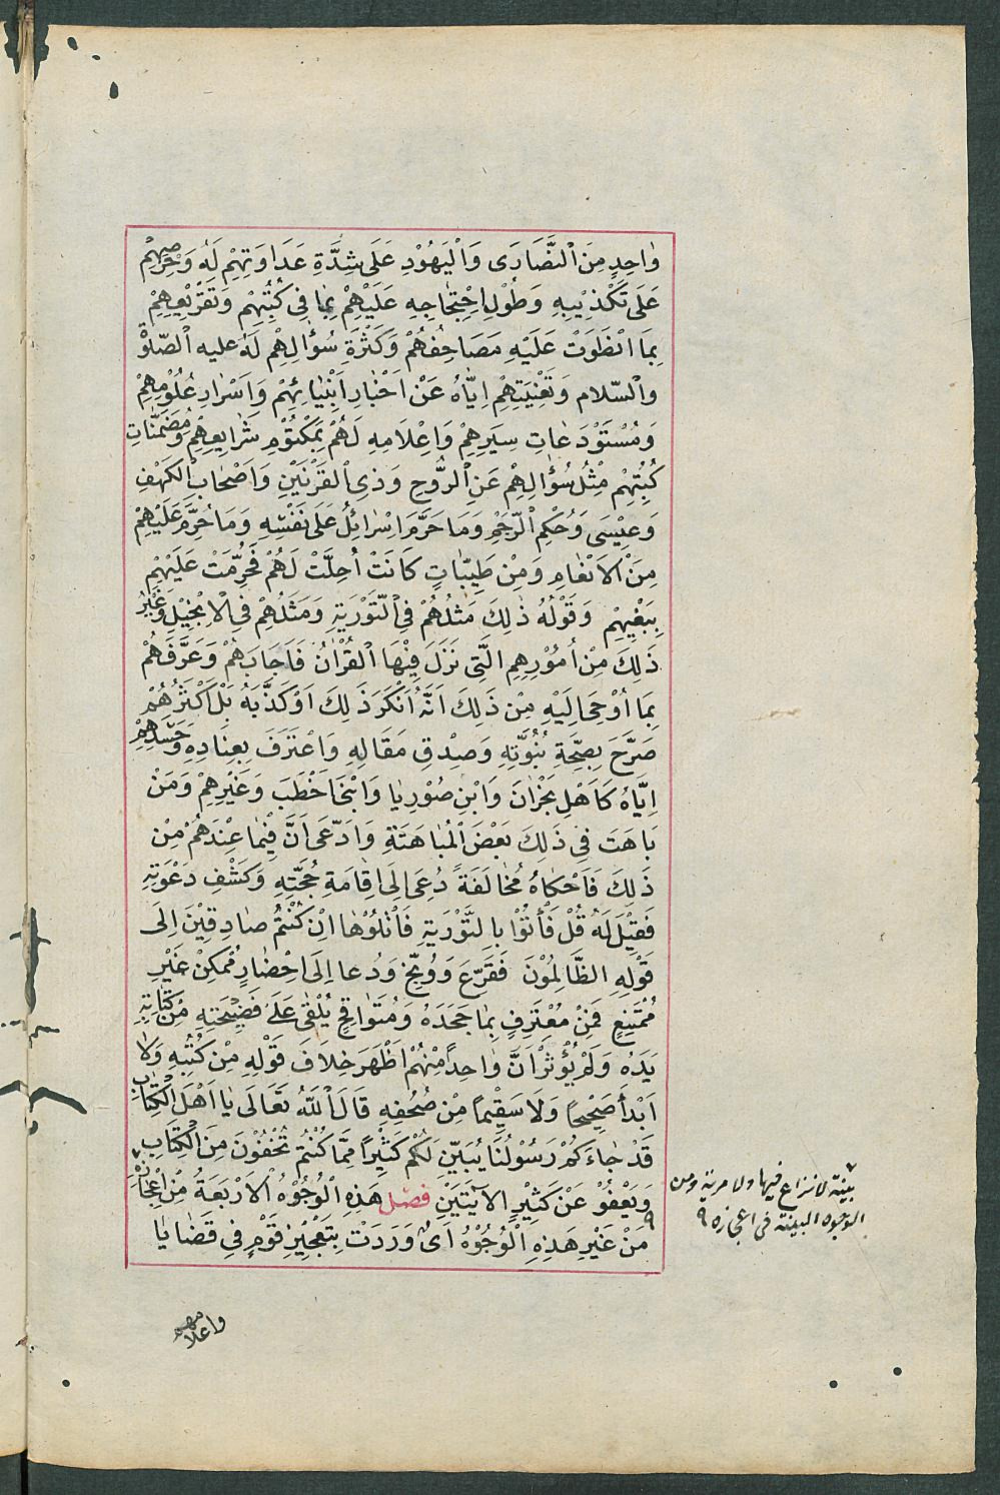 وٰاحِدٍ مِنَ الْنَّصَارَى وَالْيَهُوْدِ عَلَى شِدَّةِ عَدَاوَتِهِمْ لَهُ وَحِرْصِهِمْ
عَلَى تَكْذِيْبِهِ وَطُوْلِ اِحْتِجٰاجِهِ عَلَيْهِمْ بِمٰا فِى كُتُبِهِمْ وَتَقْرِيْعِهِمْ
بِمَا انْطَوَتْ عَلَيْهِ مَصَاحِفُهُمْ وَكَثْرَةِ سُؤٰالِهِمْ لَهُ عليه الصّلوٰة
والسّلام وَتَعْنِيَتِهِمْ اِيّٰاهُ عَنْ اَخْبٰارِ اَنْبِيٰائِهِمْ وَاَسْرٰارِ عُلُوْمِهِمْ
وَمُسْتَوْدَعٰاتِ سِيَرِهِمْ وَاِعْلَامِهِ لَهُمْ بِمَكْتُوْمِ شَرٰايِعِهِمْ وَمُضَمَّنٰاتِ
كُتُبِهِمْ مِثْلُ سُؤٰالِهِمْ عَنِ الْرُّوحِ وَذِى الْقَرْنَيْنِ وَاَصْحٰابِ الْكَهْفِ
وَعِيْسَى وَحُكْمِ الْرَّجْمِ وَمَا حَرَّمَ اِسْرٰائِلُ عَلَى نَفْسِهِ وَمَا حُرِّمَ عَلَيْهِمْ
مِنَ الْاَنْعٰامِ وَمِنْ طَيِّبٰاتٍ كَانَتْ اُحِلَّتْ لَهُمْ فَحُرِّمَتْ عَلَيْهِمْ
بِبَغْيِهِمْ وَقَوْلُهُ ذٰلِكَ مَثَلُهُمْ فِى الْتَّوْرٰيةِ وَمَثَلُهُمْ فِى الْاِنْجِيْلِ وَغَيْرُ
ذَلِكَ مِنْ اُمُوْرِهِمِ الَّتِى نَزَلَ فِيْهَا الْقُرْاٰنُ فَاَجَابَهُمْ وَعَرَّفَهُمْ
بِمَا اُوْحِىَ اِلَيْهِ مِنْ ذَلِكَ اَنَّهُ اَنْكَرَ ذَلِكَ اَوْ كَذَّبَهُ بَلْ اَكْثَرُهُمْ
صَرَّحَ بِصِحَّةِ نُبُوَّتِهِ وَصِدْقِ مَقَالِهِ وَاعْتَرَفَ بِعِنَادِهِ وَحَسَدِهِمْ
اِيَّاهُ كَاَهْلِ نَجْرَانَ وَابْنِ صُوْرِيٰا وَابْنَىْ اَخْطَبَ وَغَيْرِهِمْ وَمَنْ
بَاهَتَ فِى ذَلِكَ بَعْضَ الْمُبٰاهَتَةِ وَادَّعَى اَنَّ فِيْمٰا عِنْدَهُمْ مِنْ
ذَلِكَ فَاَحْكٰاهُ مُخٰالَفَةً دُعِىَ اِلَى اِقٰامَةِ حُجَّتِهِ وَكَشْفِ دَعْوَتِهِ
فَقِيْلَ لَهُ قُلْ فَأْتُوْا بِالتَّوْرٰيةِ فَاتْلُوْهٰا اِنْ كُنْتُمْ صٰادِقِيْنَ اِلَى
قَوْلِهِ الظَّالِمُوْنَ فَقَرَّعَ وَوُبِّخَ وَدُعَا اِلَى اِحْضٰارٍ مُمْكِنٍ غَيْرِ
مُمْتَنِعٍ فَمِنْ مُعْتَرِفٍ بِمٰا جَحَدَهُ وَمُتَوٰاقِحٍ يُلْقٰى عَلَى فَضِيْحَتِهِ مِنْ كِتٰابِهِ
يَدَهُ وَلَمْ يُؤْثَرْ اَنَّ وٰاحِداً مِنْهُمْ اَظْهَرَ خِلَافَ قَوْلِهِ مِنْ كُتُبِهِ وَلَا
اَبْدَأَ صَحِيْحاً وَلَا سَقِيْماً مِنْ صُحُفِهِ قَالَ اللّٰهُ تَعَالَى يٰا اَهْلَ الْكِتَابِ
قَدْ جٰاءَكُمْ رَسُوْلُنٰا يُبَيِّنُ لَكُمْ كَثِيْراً مِمَّا كُنْتُمْ تُخْفُوْنَ مِنَ الْكِتٰابِ
وَيَعْفُوْ عَنْ كَثِيْرٍ الْاٰيَتَيْنِ فصْل هَذِهِ الْوُجُوْهُ الْاَرْبَعَةُ مِنْ اِعْجٰازِهِ
مِنْ غَيْرِ هَذِهِ الْوُجُوْهُ اٰىٌ وَرَدَتْ بِتَعْجِيْزِ قَوْمٍ فِى قَضٰايٰا
بينة لا نزاع فيها ولا مرية ومن
الوجوه البينة فى اعجازه ٩
واعلامهم